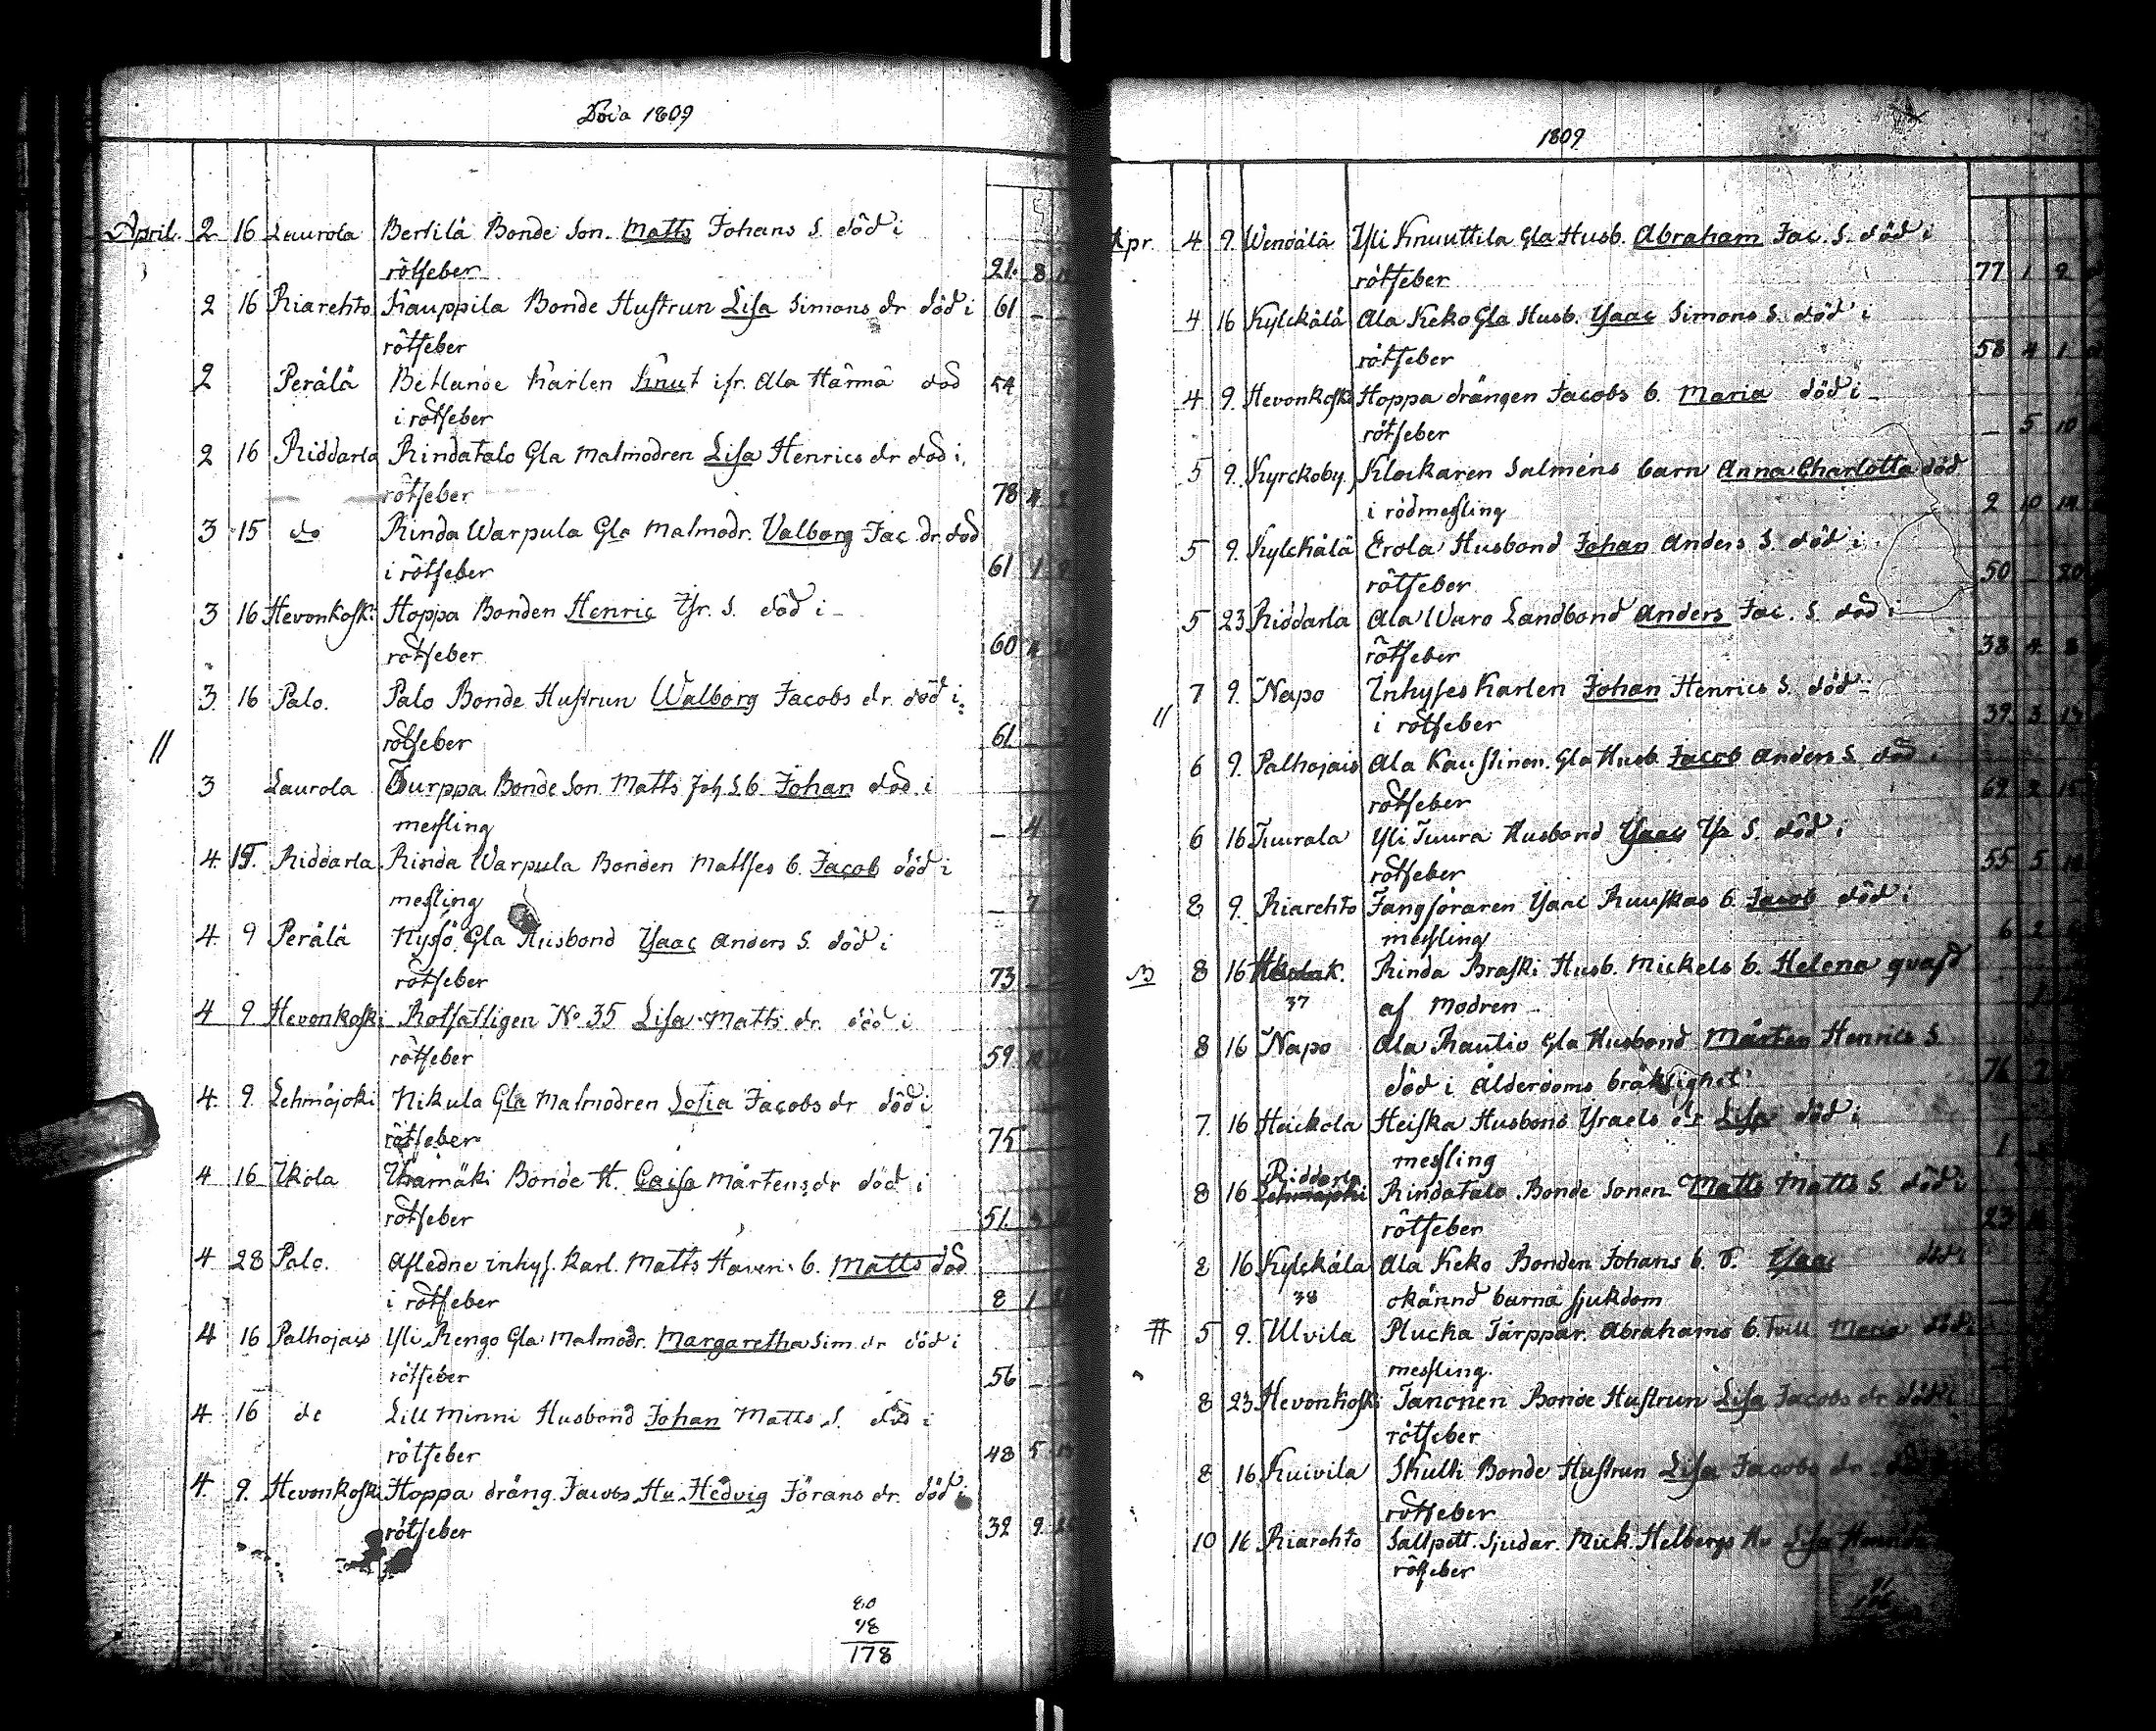 Döda 1809
April. 2 16 Laurola Bertilä Bonde Son. Matts Johans S. död i
rötfeber 21. 8
2 16 Riarehto Kauppila Bonde Hustrun Lisa Simons dr död i 61 _ _
rötfeber
2 Perälä Betlande Karlen Knut ifr. Ala Härmä död 54
i rötfeber
2 16 Riddarla Rindatalo Gla Matmodren Lisa Henrics dr död i
rötfeber 78 4 2
3 15 do Rinda Warpula Gla Matmodr. Valborg Jac. dr. död
i rötfeber 61 1
3 16 Hevonkoski Hoppa Bonden Henric Ysr. S. död i
rötfeber 60
3 16 Palo. Palo Bonde Hustrun Walborg Jacobs dr. död i
rötfeber 61 _
// 3 Laurola Turppa Bonde Son Matts Joh. S. b. Johan död i
messling _ 4
4 15. Riddarla Rinda Warpula Bonden Mattses b. Jacob död i
messling _ 7
4 9 Perälä Nyssö Gla Husbond Ysaac Anders S. död i
rötfeber 73 _
4 9 Hevonkoski Rotfattigen No 35 Lisa Matts dr. död i
rötfeber 59.
4 9. Lehmäjoki Nikula Gla Matmodren Sofia Jacobs dr död i
rötfeber 75 _
4 16 Ikola Bonde H. Caisa Mårtens dr död i
rötfeber 51.
4 28 Palo. Afledne inhys. Karl. Matts b. Matts död
i rötfeber 8 1
4 16 Palhojais Yli Rengo Gla Matmodr. Margaretha Sim. dr död i
rötfeber 56 _ _
4 16 do Lill Minni Husbond Johan Matts S. död i
rötfeber 48 5
4 9. Hevonkoski Hoppa dräng. Jacobs Hu Hedvig Jörans dr. död i
rötfeber 32 9
80
98
178
1809
Apr. 4 9. Wendälä Yli Knuuttila Gla Husb. Abraham Jac. S. död i
rötfeber 77 1 2
4 16 Kylckälä Ala Keko Gla Husb. Ysaac Simons S. död i
rötfeber 58 4 1
4 9. Hevonkoski Hoppa drängen Jacobs b. Maria död i
rötfeber _ 5 10
5 9. Kyrckoby Klockaren Salmens barn Anna Charlotta död
i rödmessling 2 10 14
5 9. Kylckälä Erola Husbond Johan Anders S. död i
rötfeber 50 _ 20
5 23 Riddarla Ala Waro Landbond Anders Jac. S. död i
rötfeber 38 4 8
// 7 9. Napo Inhyses Karlen Johan Henrics S. död
i rötfeber 39 3
6 9. Palhojais Ala Kaustinen Gla Husb. Jacob Anders S. död i
rötfeber 69 2 15
6 16 Tuurala Yli Tuura Husbond Ysaac Ys S. död i
rötfeber 55 5
8 9. Riarehto Fångföraren Ysaac Ruuskas b. Jacob död i
messling 6 2
8 16 Rinda Braski Husb. Mickels b. Helena qvafd
37 af Modren
8 16 Napo Ala Rautio Gla Husbond Mårten Henrics S.
död i ålderdoms bräklighet 76 2
7 16 Heickola Heiska Husbond Ysraels dr Lisa död i
messling 1
8 16 Riddarla Lehmäjoki Rindatalo Bonde Sonen Matts Matts S. död i
rötfeber 23
8 16 Kylckälä Ala Keko Bonden Johans b. Ysaac död i
38 okännd barna sjukdom
# 5 9. Ulvila Plucka Tärppar. Abrahams b. Tvill Maria död i
messling.
8 23 Hevonkoski Jancnen Bonde Hustrun Lisa Jacobs dr död i
rötfeber
8 16 Kuivila Skulti Bonde Hustrun Lisa Jacobs dr
rötfeber
10 16 Riarehto Sallpett. Sjudar. Mick. Helbergs Hu Lisa
rötfeber